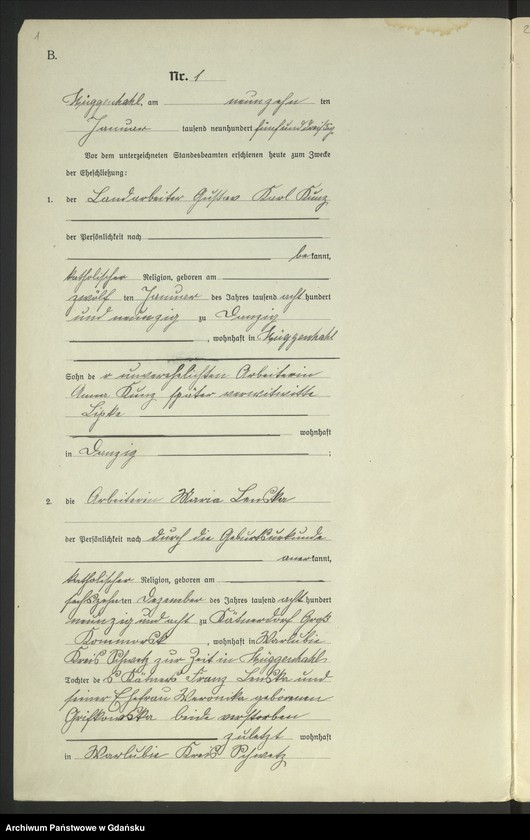 1
B.
Nr. 1
Müggenhahl, am neunzehn ten
Januar tausend neunhundert fünfunddreißig
Vor dem unterzeichneten Standesbeamten erschienen heute zum Zwecke
der Eheschließung:
1. der Landarbeiter Gustav Karl Kunz
der Persönlichkeit nach
be kannt,
katholischer Religion, geboren am
zwölf ten Januar des Jahres tausend acht hundert
und neunzig zu Danzig
, wohnhaft in Müggenhahl
Sohn de r unverehelichten Arbeiterin
Anna Kunz später verwitwitte
Lipke
wohnhaft
in Danzig ;
2. die Arbeiterin Maria Lenska
der Persönlichkeit nach durch die Geburtsurkunde
aner kannt,
katholischer Religion, geboren am
sechszehn ten Dezember des Jahres tausend acht hundert
neunzig und acht zu Kätnerdorf Groß
Kommorsk, wohnhaft in Warlubie
Kreis Schwetz zur Zeit in Müggenhahl
Tochter de s Kätners Franz Lenska und
seiner Ehefrau Weronika geborenen
beide verstorben
zuletzt wohnhaft
in Warlubie Kreis Schwetz
Archiwum Państwowe w Gdańsku